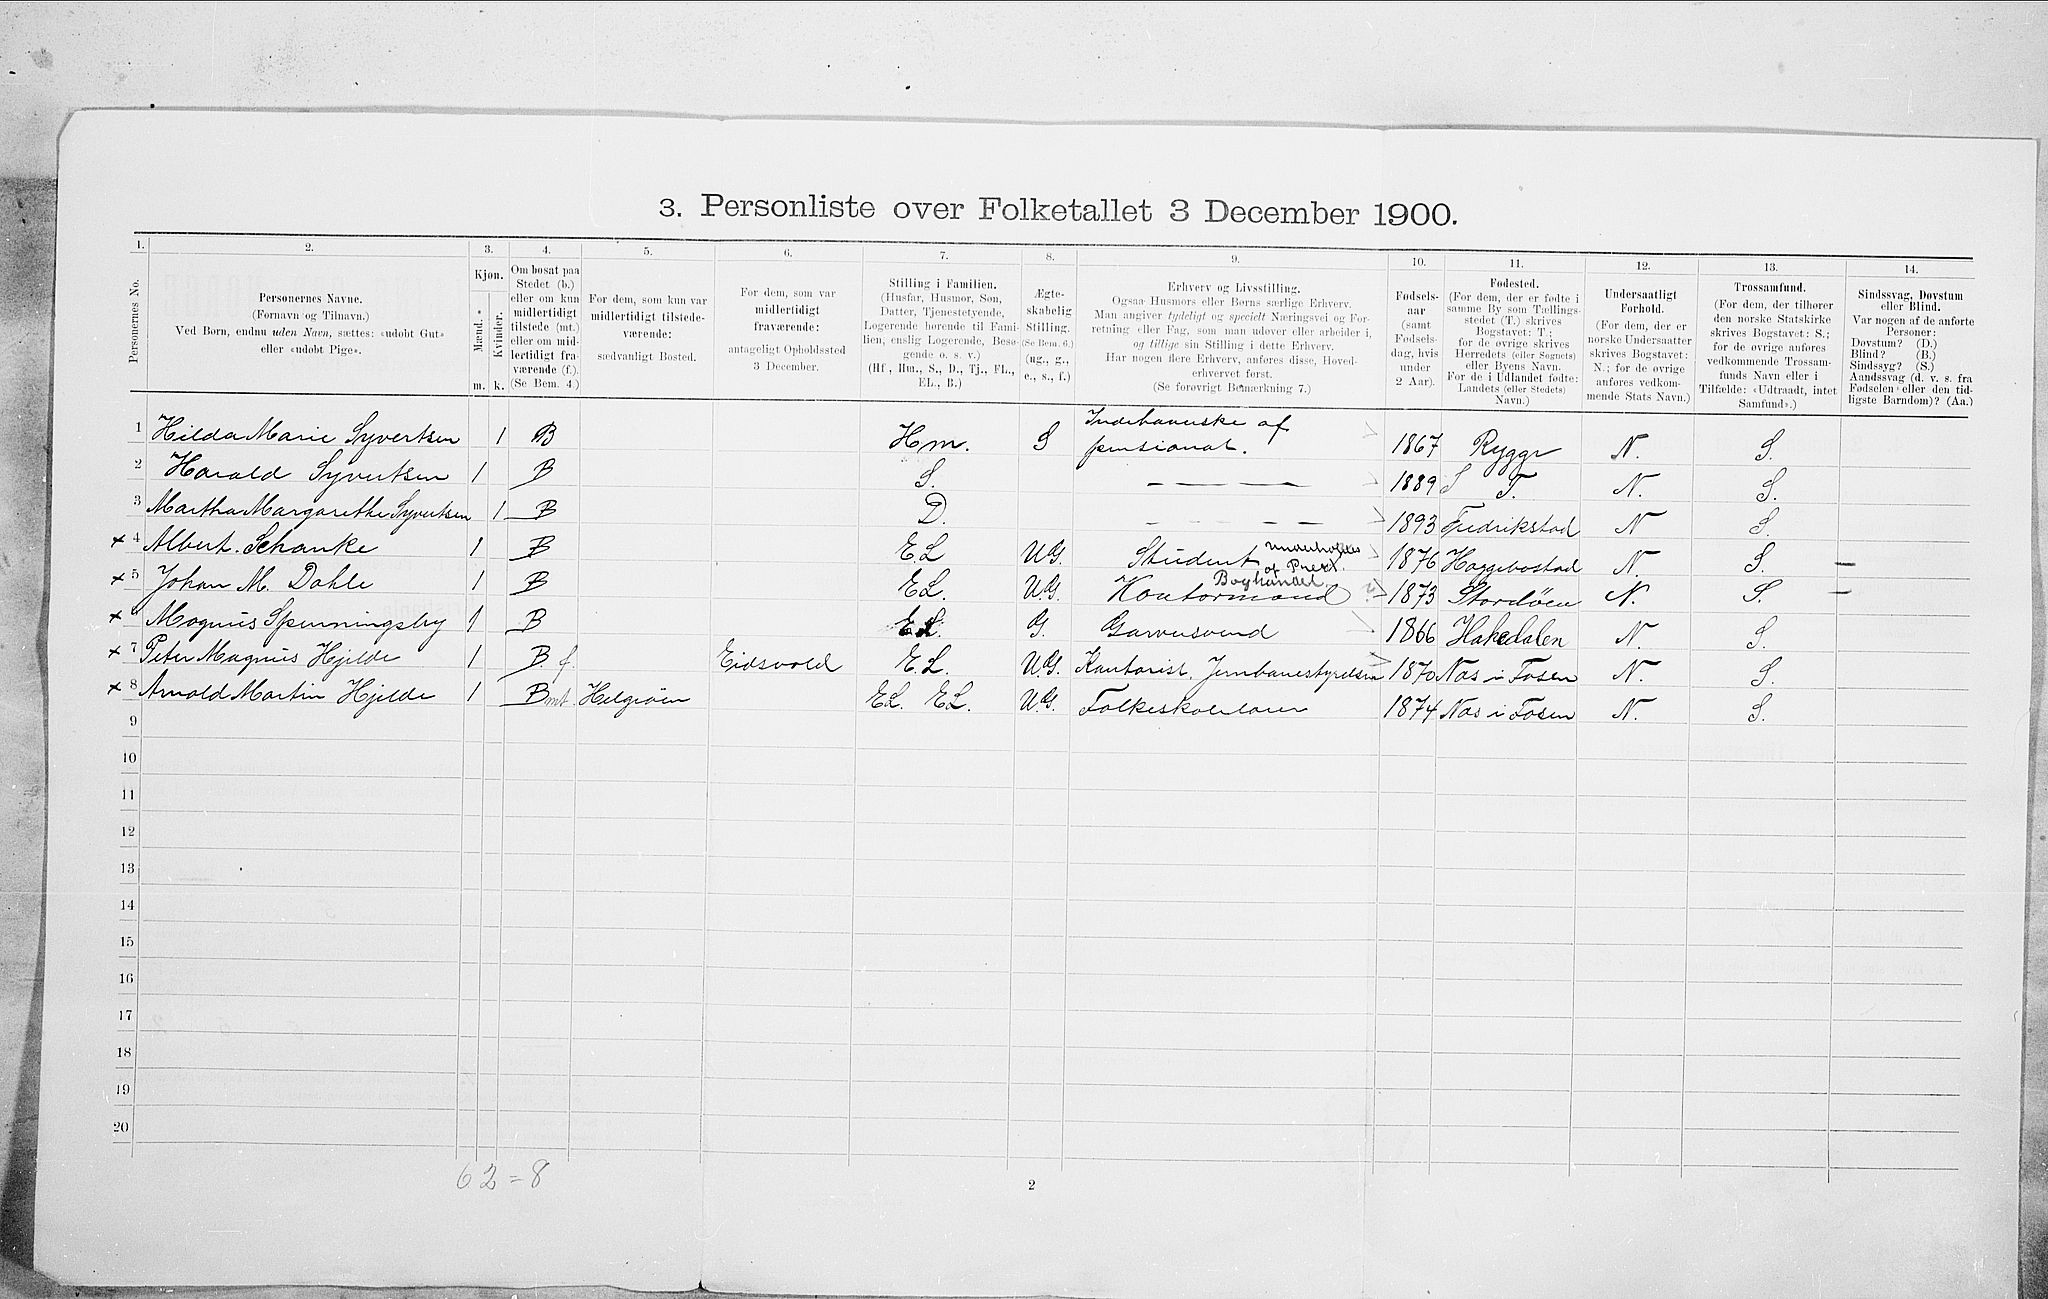 3. Personliste over Folketallet 3 December 1900.
1. 2. 3. 4. 5. 6. 7. 8. 9. 10. 11. 12. 13. 14.
Personernes No.
Personernes Navne.
(Fornavn og Tilnavn.)
Ved Børn, endnu uden Navn, sættes: «udøbt Gut»
eller «udøbt Pige».
Kjøn.
Mænd.
Kvinder.
m. k.
Om bosat paa
Stedet (b.)
eller om kun
midlertidigt
tilstede (mt.)
eller om mid-
lertidigt fra-
værende (f.).
(Se Bem. 4.)
For dem, som kun var
midlertidigt tilstede-
værende:
sædvanligt Bosted.
For dem, som var
midlertidigt
fraværende:
antageligt Opholdssted
3 December.
Stilling i Familien.
(Husfar, Husmor, Søn,
Datter, Tjenestetyende,
Logerende hørende til Fami-
lien, enslig Logerende, Besø-
gende o. s. v.)
(Hf, Hm., S., D., Tj., FL.,
EL., B.)
Ægte-
skabelig
Stilling.
(Se Bem. 6.)
(ug., g.,
e., s., f.)
Erhverv og Livsstilling.
Ogsaa Husmors eller Børns særlige Erhverv.
Man angiver tydeligt og specielt Næringsvei og For-
retning eller Fag, som man udøver eller arbeider i,
og tillige sin Stilling i dette Erhverv.
Har nogen flere Erhverv, anføres disse, Hoved-
erhvervet først.
(Se forøvrigt Bemærkning 7.)
Fødsels-
aar
(samt
Fødsels-
dag, hvis
under
2 Aar).
Fødested.
(For dem, der er fødte i
samme By som Tællings-
stedet (T.) skrives
Bogstavet: T.;
for de øvrige skrives
Herredets (eller Sognets)
eller Byens Navn.
For de i Udlandet fødte:
Landets (eller Stedets)
Navn.)
Undersaatligt
Forhold.
(For dem, der er
norske Undersaatter
skrives Bogstavet:
N.; for de øvrige
anføres vedkom-
mende Stats Navn.)
Trossamfund.
(For dem, der tilhører
den norske Statskirke
skrives Bogstavet: S.;
for de øvrige anføres
vedkommende Trossam-
funds Navn eller i
Tilfælde: «Udtraadt, intet
Samfund».)
Sindssvag, Døvstum
eller Blind.
Var nogen af de anførte
Personer:
Døvstum? (D.)
Blind? (B.)
Sindssyg? (S.)
Aandssvag (d. v. s. fra
Fødselen eller den tid-
ligste Barndom)? (Aa.)
1 Hilda Marie Syvertsen 1 B Hm. S Indehaverske af pensionat. 1867 Rygge N. S.
2 Harald Syvertsen 1 B S. 1889 T. N. S.
3 Martha Margarethe Syvertsen 1 B D. 1893 Fredrikstad N S.
x 4 Albert. Schanke 1 B E L U G. Student 1876 Haggebostad N. S. —
x 5 Johan M. Dahle 1 B E L. U. G. Boghandel. Kontormand 1873 Stordøen N. S. —
x 6 Magnus Spenningsby 1 B E L. G. Garversvend 1866 Hakedalen N. S.
x 7 Peter Magnus Hjelde 1 B. f. Eidsvold E L. U G. Kontorist, Jernbanestyrelsen 1870 Næs i Fosen N. S.
x 8 Arnold Martin Hjelde 1 B mt. Helgøen E L. E L. U. G. Folkeskolelærer 1874 Næs i Fosen N. S.
9
10
11
12
13
14
15
16
17
18
19
20
62 = 8
2